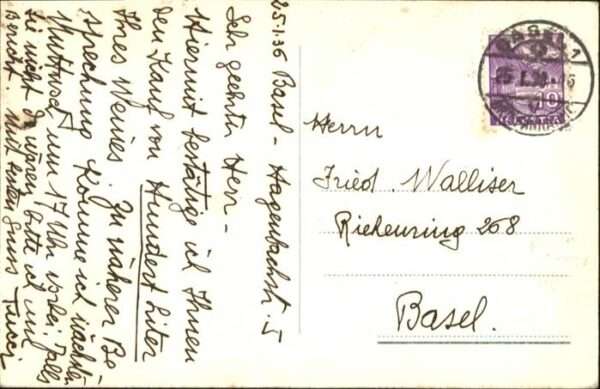 25.1.36 Basel - Hagenbachstr. 5
Sehr geehrter Herr -
Hiermit bestätige ich Ihnen
den Kauf von Hundert Liter
Ihres Weines. Zu näherer Be
sprechung komme ich nächsten
Mittwoch um 17 Uhr vorbei. Falls
Sie nicht da wären, bitte ich um
Bericht. Mit besten Gruss
Herrn
Fried. Walliser
Riehenring 268
Basel.
BASEL 1
10